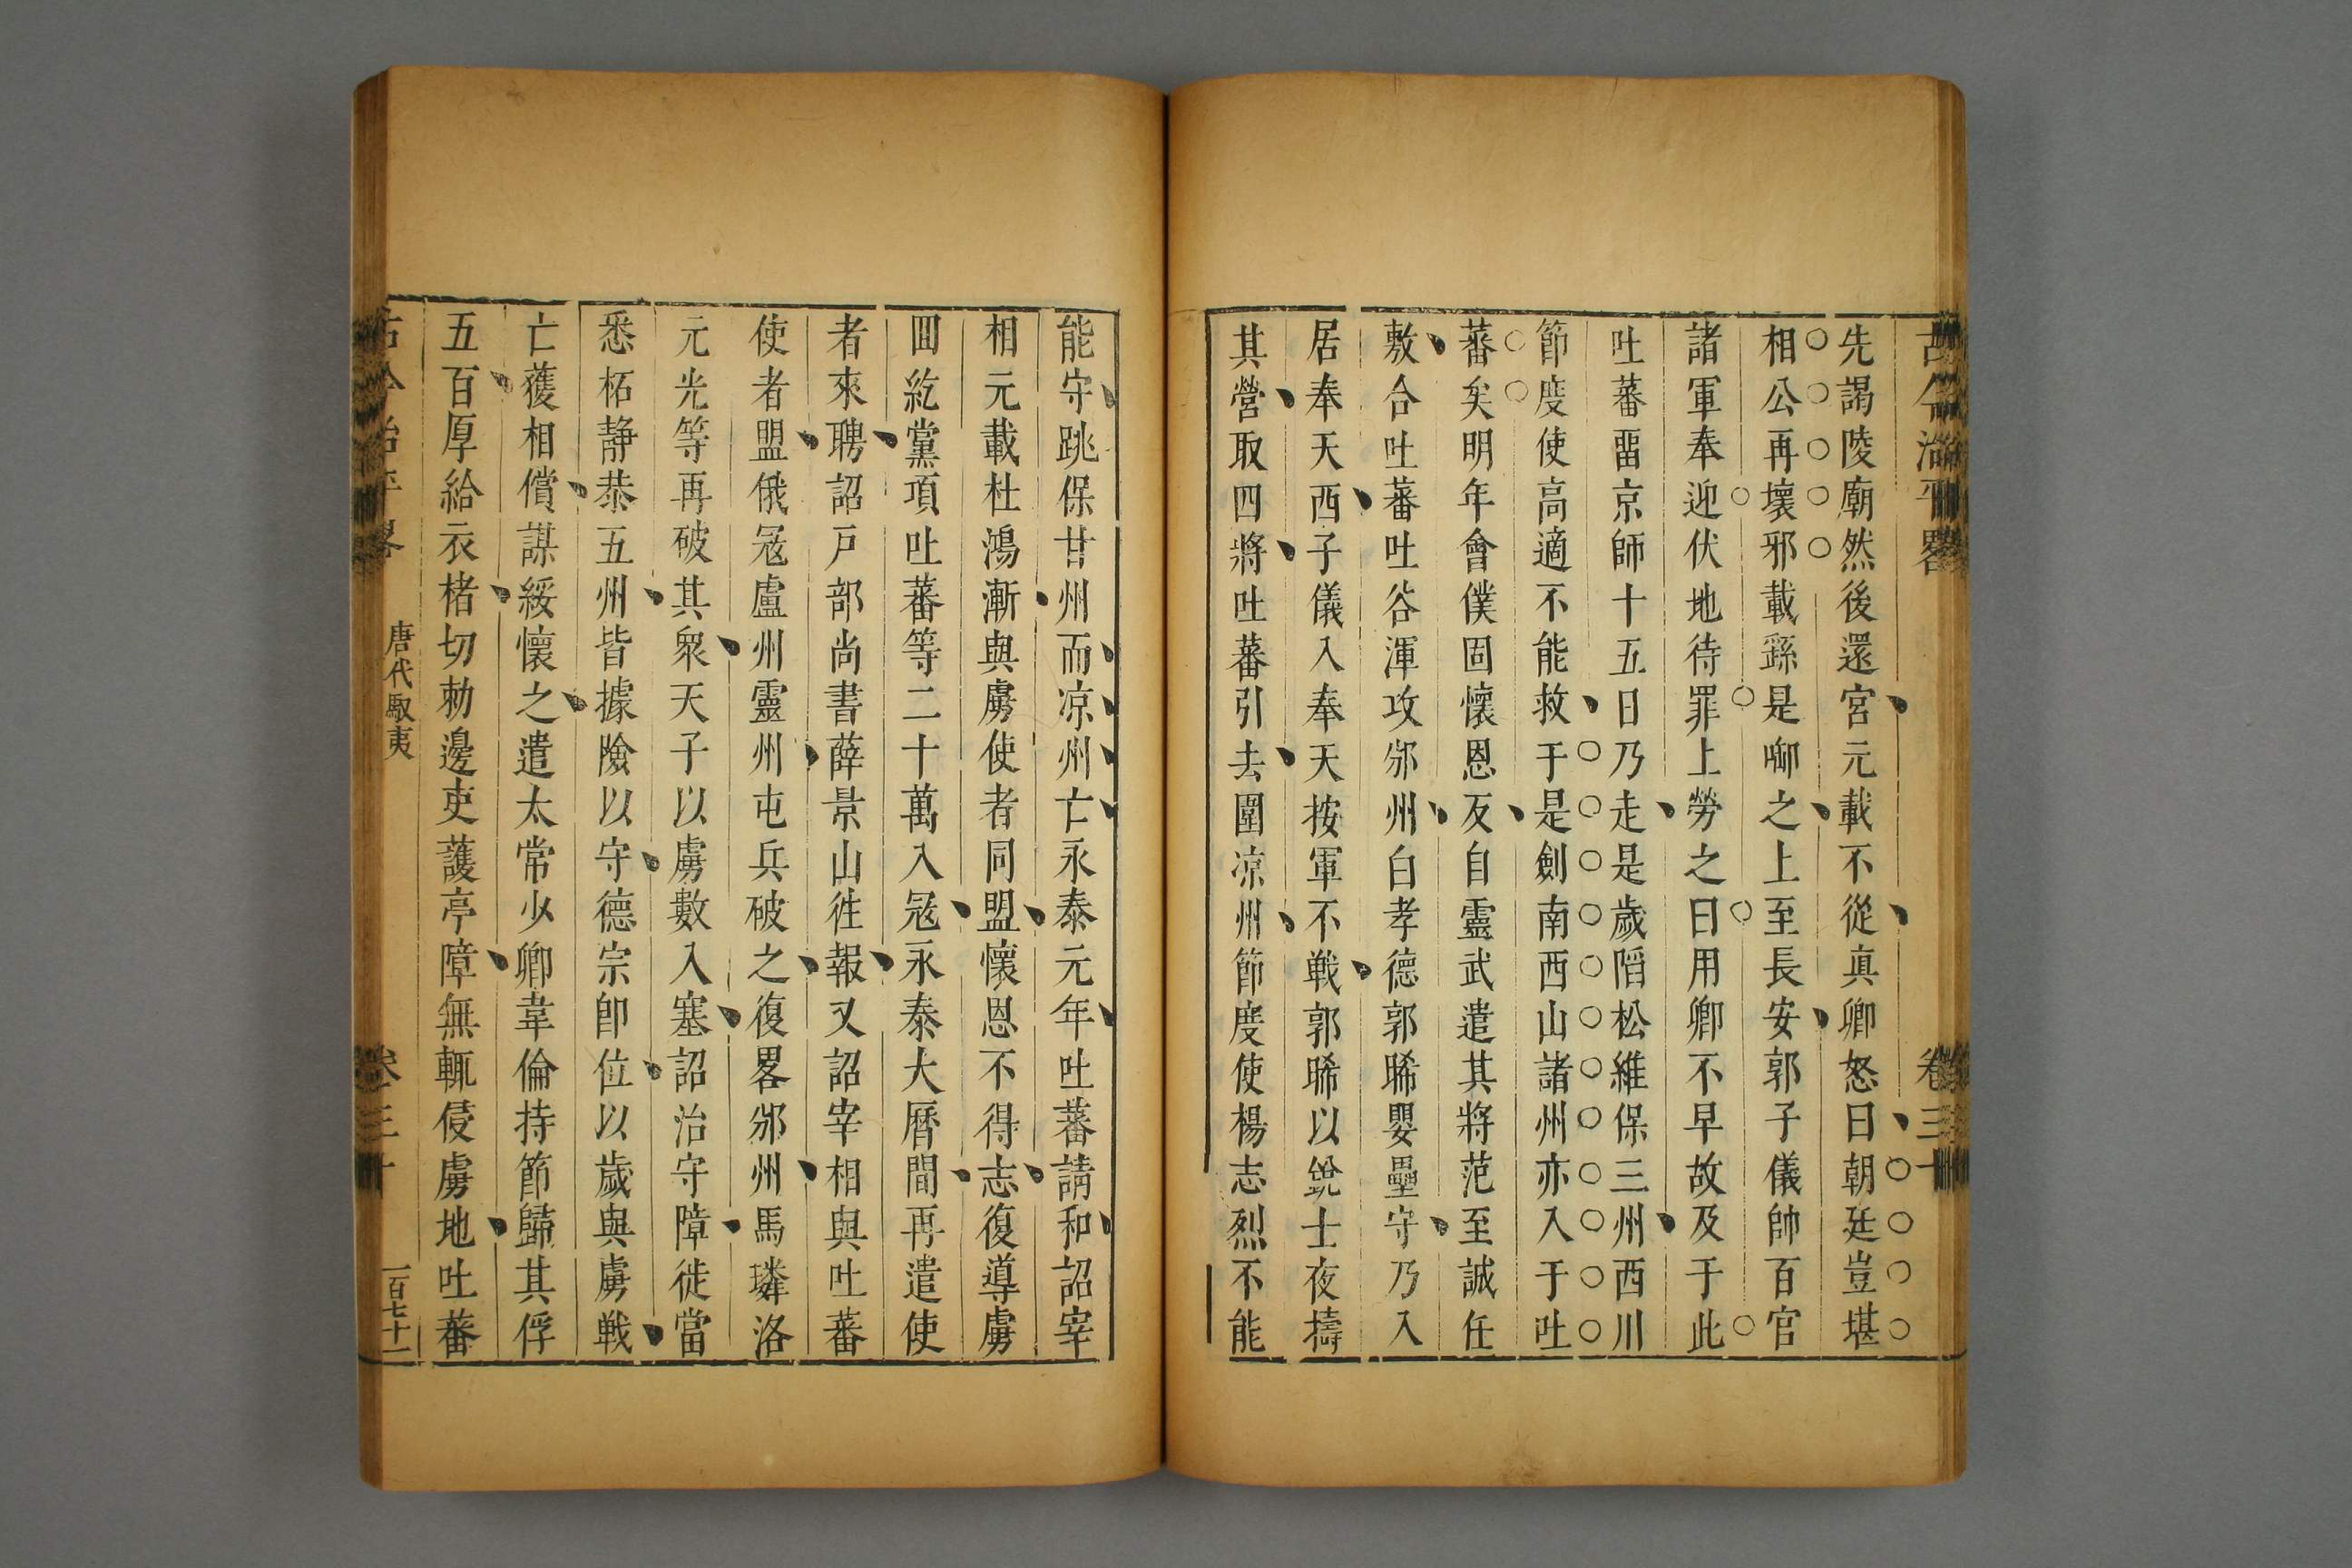 古今治平畧 卷三十
先謁陵廟然後還宮元載不從真卿怒曰朝廷豈堪
相公再壞邪載繇是啣之上至長安郭子儀帥百官
諸軍奉迎伏地待罪上勞之曰用卿不早故及于此
吐蕃畱京師十五日乃走是歲陷松維保三州西川
節度使高適不能救于是劍南西山諸州亦入于吐
蕃矣明年會僕固懷恩反自靈武遣其將范至誠任
敷合吐蕃吐谷渾攻邠州白孝德郭晞嬰壘守乃入
居奉天西子儀入奉天按軍不戰郭晞以銳士夜擣
其營取四將吐蕃引去圍凉州節度使楊志烈不能
能守跳保甘州而凉州亡永泰元年吐蕃請和詔宰
相元載杜鴻漸與虜使者同盟懷恩不得志復導虜
回紇黨項吐蕃等二十萬入冦永泰大曆間再遣使
者來聘詔戸部尚書薛景山徃報又詔宰相與吐蕃
使者盟俄冦盧州靈州屯兵破之復畧邠州馬璘洛
元光等再破其衆天子以虜數入塞詔治守障徙當
悉柘静恭五州皆據險以守德宗卽位以歲與虜戰
亡獲相償謀綏懷之遣太常少卿韋倫持節歸其俘
五百厚給衣楮切勅邊吏護亭障無輒侵虜地吐蕃
古今治平畧 唐代馭夷 卷三十 一百七十一